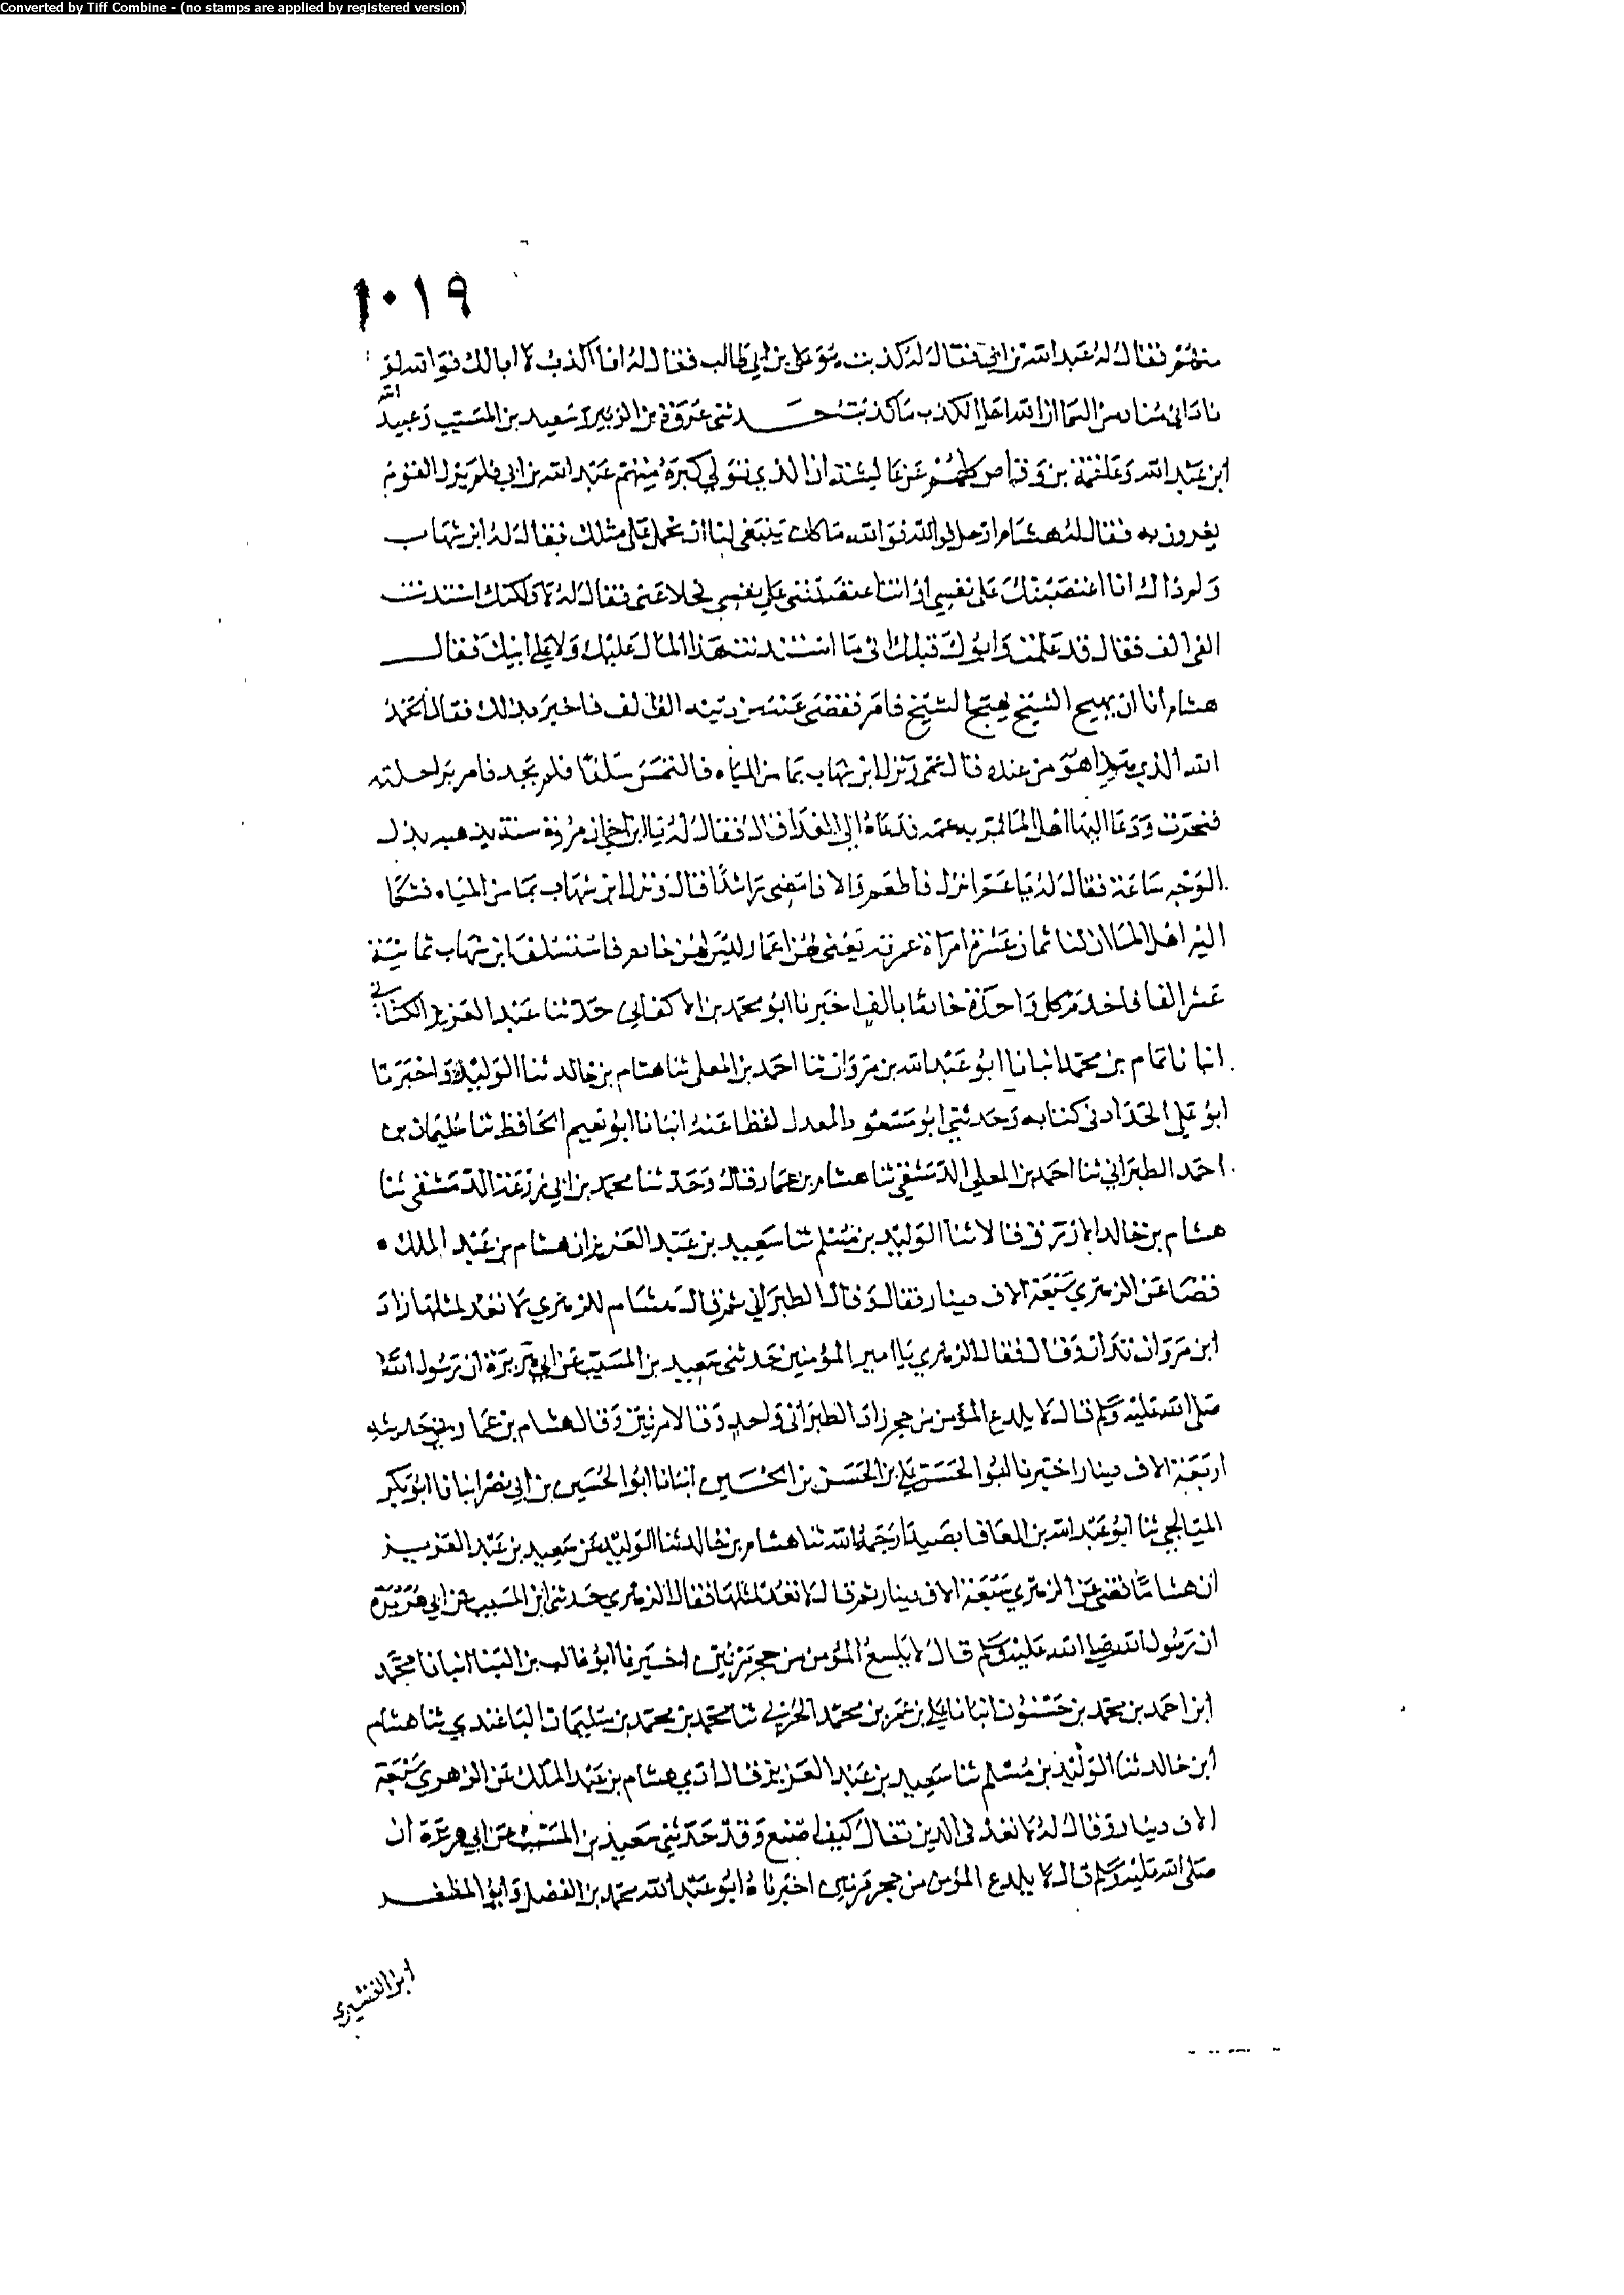 Converted by Tiff Combine - (no stamps are applied by registered version)
١٠١٩
منهم فقال له عبد الله بن ابي فقال له كذبت هو علي بن ابي طالب فقال له انا اكذب لا ابا لك فوالله لو
نادى مناد من السما ان الله احل الكذب ما كذبت حدثني عروة بن الزبير وسعيد بن المسيب وعبيد الله
ابن عبد الله وعلقمة بن وقاص كلهم عن عائشة ان الذي تولى كبره منهم عبد الله بن ابي فلم يزل القوم
يغرون به فقال له هشام ارحل فوالله ما كان ينبغي لنا ان نحمل على مثلك فقال له ابن شهاب
ولم ذاك انا اغتصبتك على نفسي او انت اغتصبتني على نفسي فخلا عني فقال له لا ولكنك استدنت
الفي الف فقال قد علمت وابوك قبلك اني ما استدنت هذا المال عليك ولا على ابيك فقال
هشام انا ان نهيج الشيخ يهيج الشيخ فامر فقضى عنه من دينه الف الف فاخبر بذلك فقال الحمد
الله الذي هذا هو من عنده قال عمي ونزل ابن شهاب بما من المياه فالتمس سلفا فلم يجد فامر براحلته
فنحرت ودعا اليها اهل الما فمر به عمه فدعاه الى الغدا فقال له يا ابن اخي ان مروة سنة يذهب بذل
الوجه ساعة فقال له يا عم انزل فاطعم والا فامضي راشدا قال ونزل ابن شهاب بما من المياه فشكا
اليه اهل الما ان لنا ثمان عشرة امراة عمرية يعني لهن اعمار ليس لهن خادم فاستسلف ابن شهاب ثمانية
عشر الفا فاخدم كل واحدة خادما بالف اخبرنا ابو محمد بن الاكفاني حدثنا عبد العزيز الكتاني
انبانا تمام بن محمد انبانا ابو عبد الله بن مروان ثنا احمد بن المعلى ثنا هشام بن خالد ثنا الوليد واخبرنا
ابو علي الحداد في كتابه وحدثني ابو مسعود المعدل لفظا عنه انبانا ابو نعيم الحافظ ثنا سليمان بن
احمد الطبراني ثنا احمد بن المعلى الدمشقي ثنا هشام بن عمار قال وحدثنا محمد بن ابي زرعة الدمشقي ثنا
هشام بن خالد الازرق قالا ثنا الوليد بن مسلم ثنا سعيد بن عبد العزيز ان هشام بن عبد الملك
قضا عن الزهري سبعة الاف دينار فقال وقال الطبراني ثم قال هشام للزهري لا نعد لمثلها زاد
ابن مروان تدان وقال فقال الزهري يا امير المؤمنين حدثني سعيد بن المسيب عن ابي هريرة ان رسول الله
صلى الله عليه وسلم قال لا يلدغ المؤمن من جحر زاد الطبراني واحد وقالا مرتين وقال هشام بن عمار في حديثه
اربعة الاف دينار اخبرنا ابو الحسن علي بن الحسن بن الحسين انبانا ابو الحسين بن ابي نصر انبانا ابو بكر
الميانجي ثنا ابو عبد الله بن المعافا بصيدا رحمه الله ثنا هشام بن خالد ثنا الوليد عن سعيد بن عبد العزيز
ان هشاما قضى عن الزهري سبعة الاف دينار ثم قال لا تعد لمثلها فقال الزهري حدثني ابن المسيب عن ابي هريرة
ان رسول الله صلى الله عليه وسلم قال لا يلسع المؤمن من جحر مرتين اخبرنا ابو غالب بن البنا انبانا محمد
ابن احمد بن محمد بن حسنون انبانا علي بن عمر بن محمد الحربي ثنا محمد بن محمد بن سليمان الباغندي ثنا هشام
ابن خالد ثنا الوليد بن مسلم ثنا سعيد بن عبد العزيز قال ادى هشام بن عبد الملك عن الزهري سبعة
الاف دينار وقال له لا تعد في الدين فقال كيف اصنع وقد حدثني سعيد بن المسيب عن ابي هريرة ان
صلى الله عليه وسلم قال لا يلدغ المؤمن من جحر مرتين اخبرناه ابو عبد الله محمد بن الفضل وابو المظفر
ابن القشيري